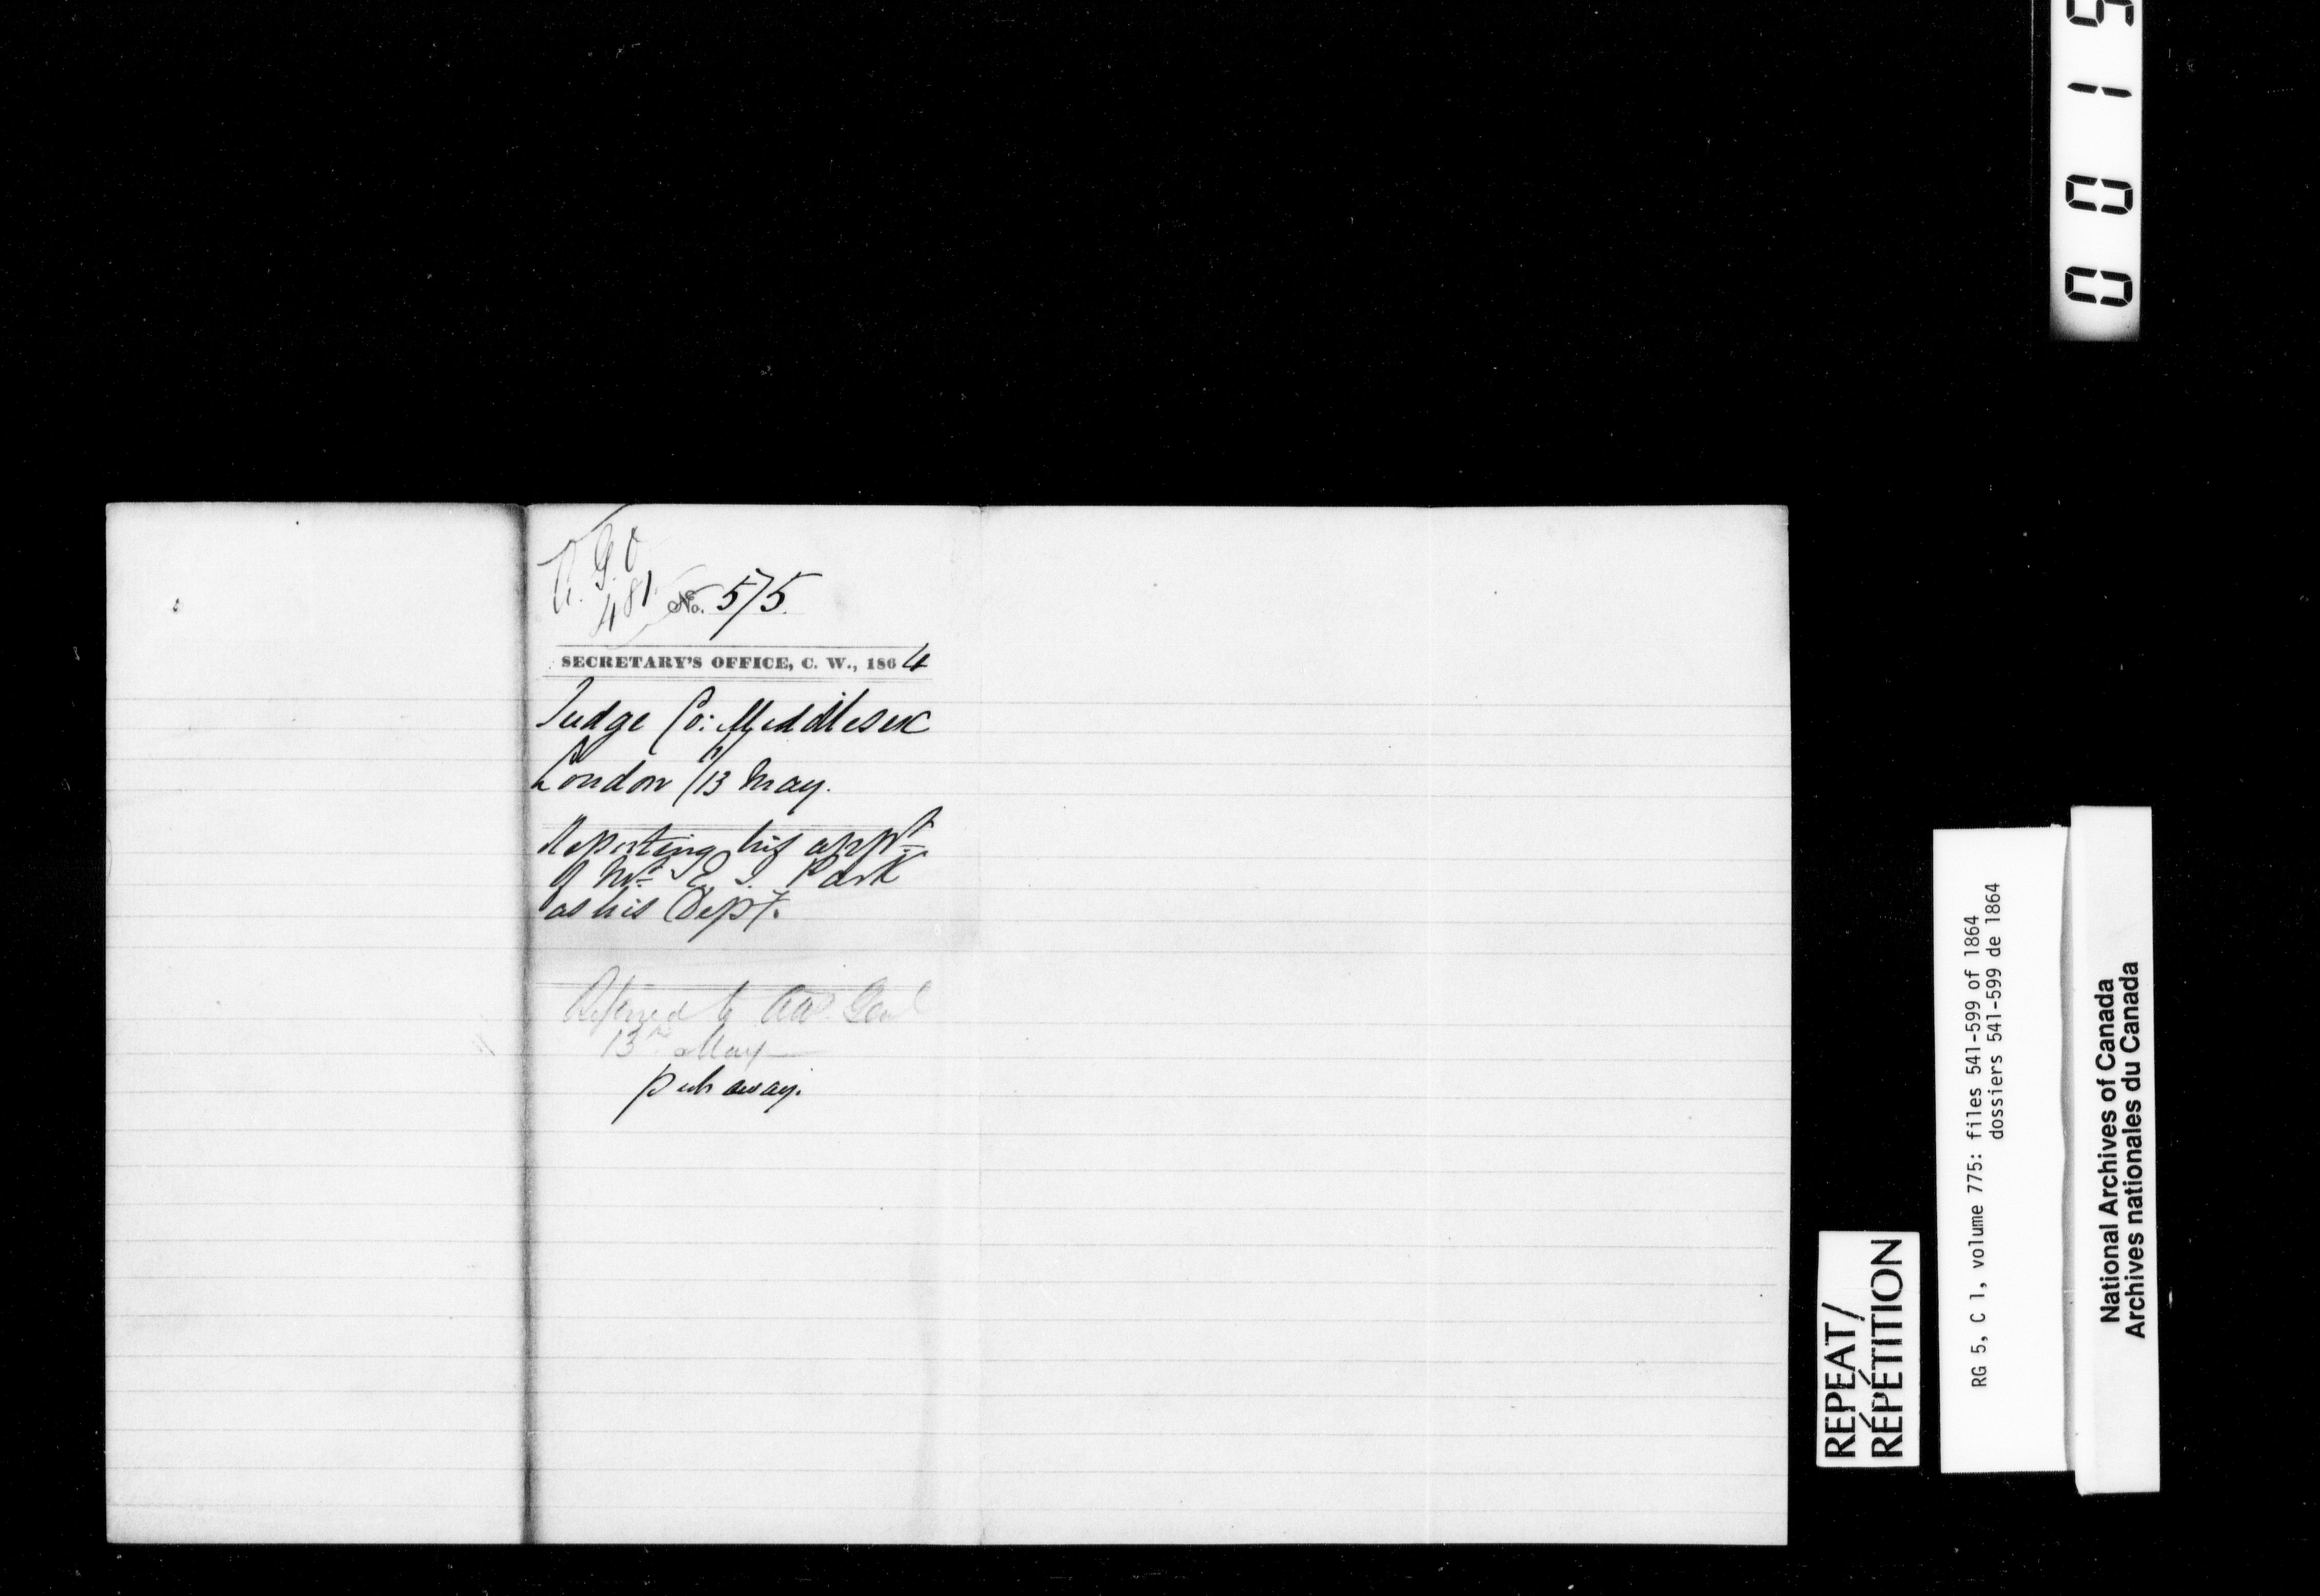 A. G. O
481. No. 575.
SECRETARY'S OFFICE, C. W., 1864
Judge Co: Middlesex
London 11/13 May.
Reporting his appt
of Mr E. J. Park
as his Depy.
Referred to Att. Genl
13th May
put away.
0 0 1 5
REPEAT/
RÉPÉTITION
RG 5, C 1, volume 775: files 541-599 of 1864
dossiers 541-599 de 1864
National Archives of Canada
Archives nationales du Canada